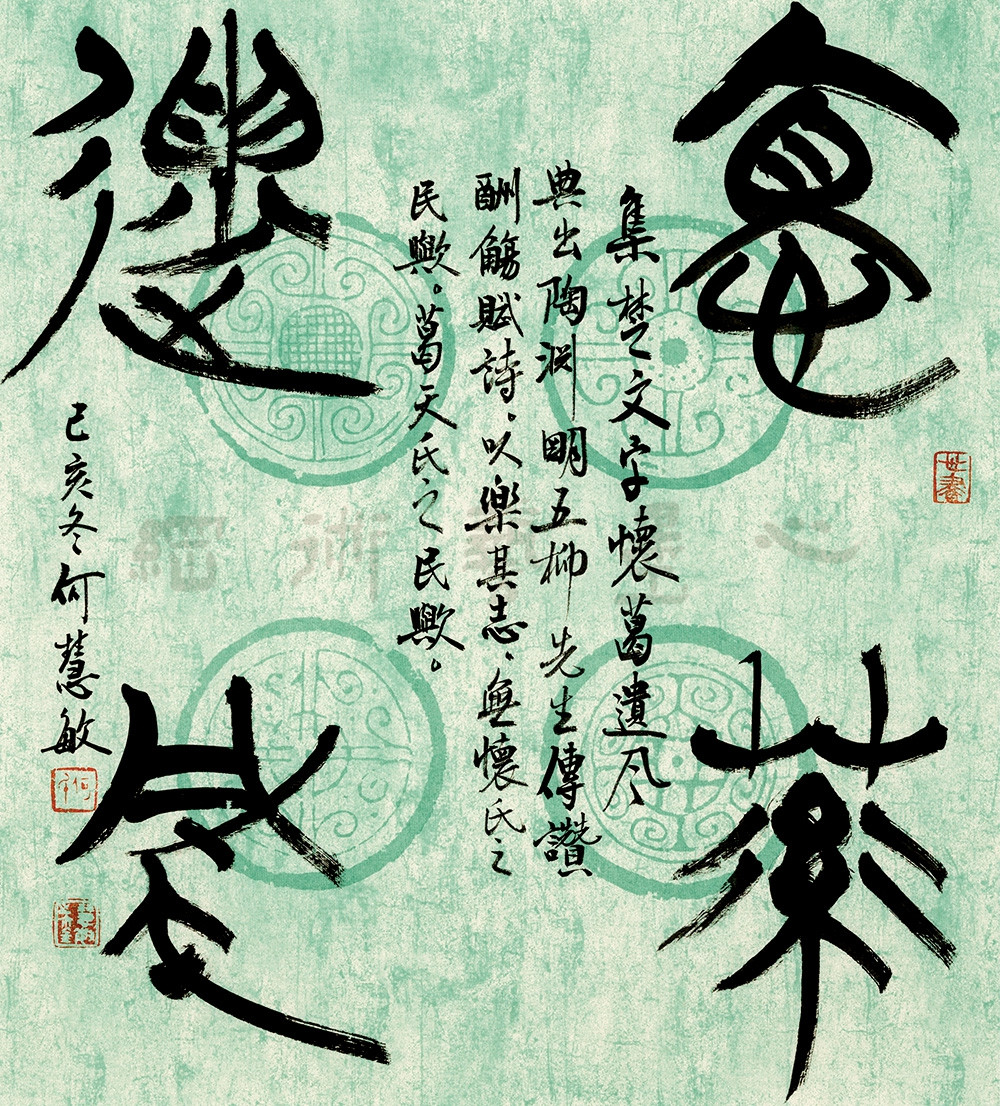 懷葛
遺風
集楚文字懷葛遺风
典出陶渊明五柳先生傳讚
酬觴賦詩。以樂其志、無懷氏之
民歟。葛天氏之民歟。
己亥冬何慧敏
何